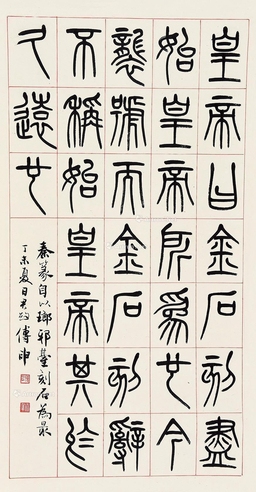 皇帝曰金石刻盡
始皇帝所為也今
襲號而金石刻辭
不稱始皇帝其於
久遠也
秦篆自以瑯邪臺刻石為最
丁未夏日君約傅申